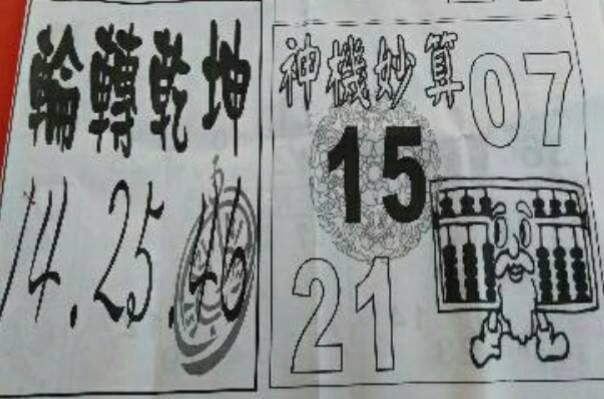 輪轉乾坤
14.25.46
神機妙算
07
15
21